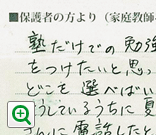 ■保護者の方より（家庭教師
塾だけでの勉強
をつけたいと思っ
どこを選べばい
うしているうちに夏
さんに電話した